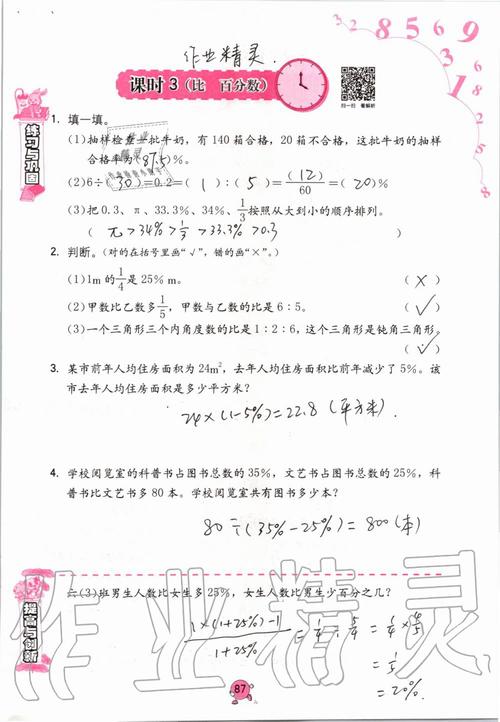 作业精灵.
课时3(比 百分数)
扫一扫 看解析
3 2 2 8 5 6 9
3 1 8 2 5 8
练习与巩固
1. 填一填。
(1)抽样检查一批牛奶，有140箱合格，20箱不合格，这批牛奶的抽样
合格率为(87.5)%。
(2)6÷(30)=0.2=(1):(5)=(12)/60=(20)%
(3)把0.3、π、33.3%、34%、1/3按照从大到小的顺序排列。
(π>34%>1/3>33.3%>0.3)
2. 判断。(对的在括号里画“√”，错的画“×”。)
(1)1m的1/4是25% m。 (×)
(2)甲数比乙数多1/5，甲数与乙数的比是6:5。 (√)
(3)一个三角形三个内角度数的比是1:2:6，这个三角形是钝角三角形。
(√)
3. 某市前年人均住房面积为24m²，去年人均住房面积比前年减少了5%。该
市去年人均住房面积是多少平方米？
24×(1-5%)=22.8(平方米).
4. 学校阅览室的科普书占图书总数的35%，文艺书占图书总数的25%，科
普书比文艺书多80本。学校阅览室共有图书多少本？
80÷(35%-25%)=800(本)
提高与创新
六(3)班男生人数比女生多25%，女生人数比男生少百分之几？
1×(1+25%)-1/1+25%=1/4÷5/4=1/4×4/5
=1/5
=20%.
作业精灵
87